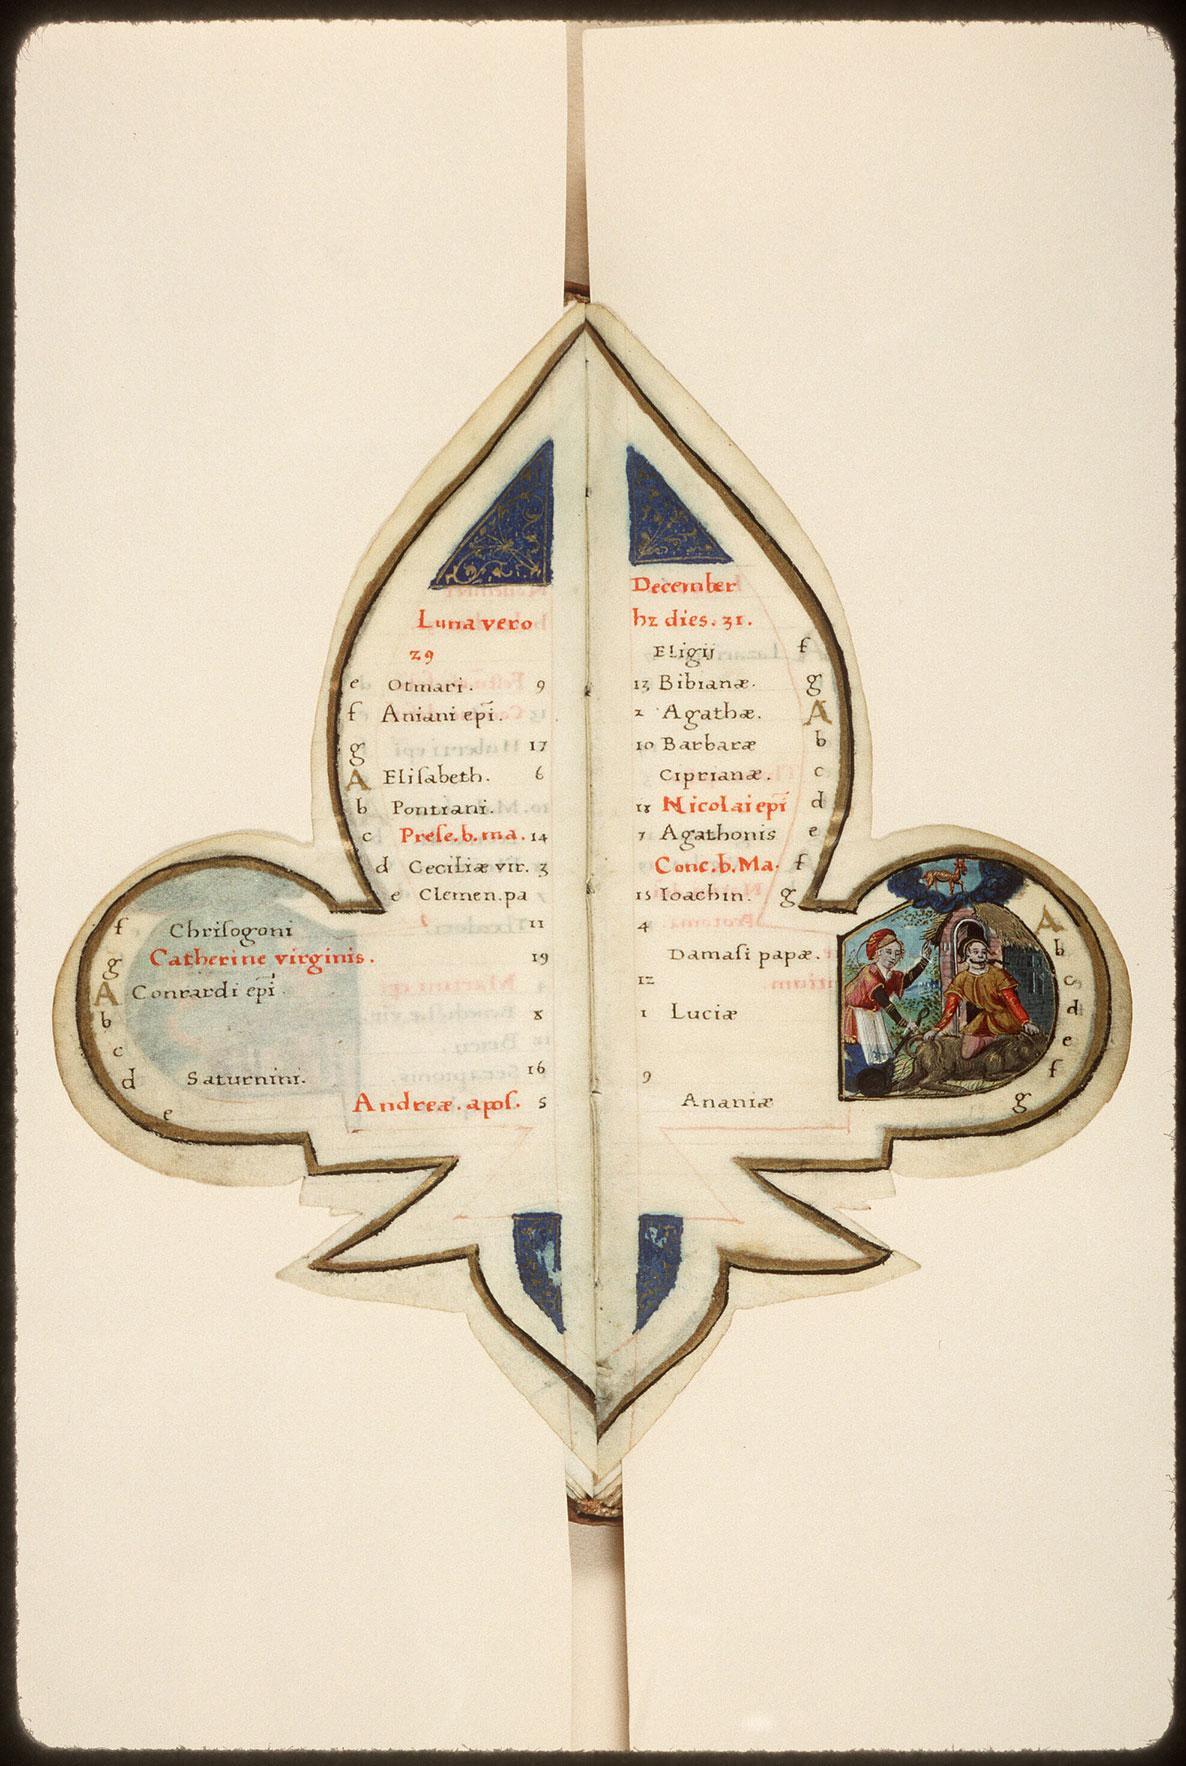 Luna vero
29
e Otmari. 9
f Aniani epī.
g 17
A Eliſabeth. 6
b Pontiani.
c Preſe.b.ma. 14
d Ceciliæ vir. 3
e Clemen.pa
f Chriſogoni 11
g Catherine virginis. 19
A Conrardi epī
b 8
c
d Saturnini. 16
e Andreæ.apoſ. 5
December
hz dies.31.
Eligij f
13 Bibianæ. g
2 Agathæ. A
10 Barbaræ b
Ciprianæ. c
18 Nicolai epī d
7 Agathonis e
Conc.b.Ma. f
15 Ioachin. g
4 A
Damaſi papæ. b
12 c
1 Luciæ d
e
9 f
Ananiæ g